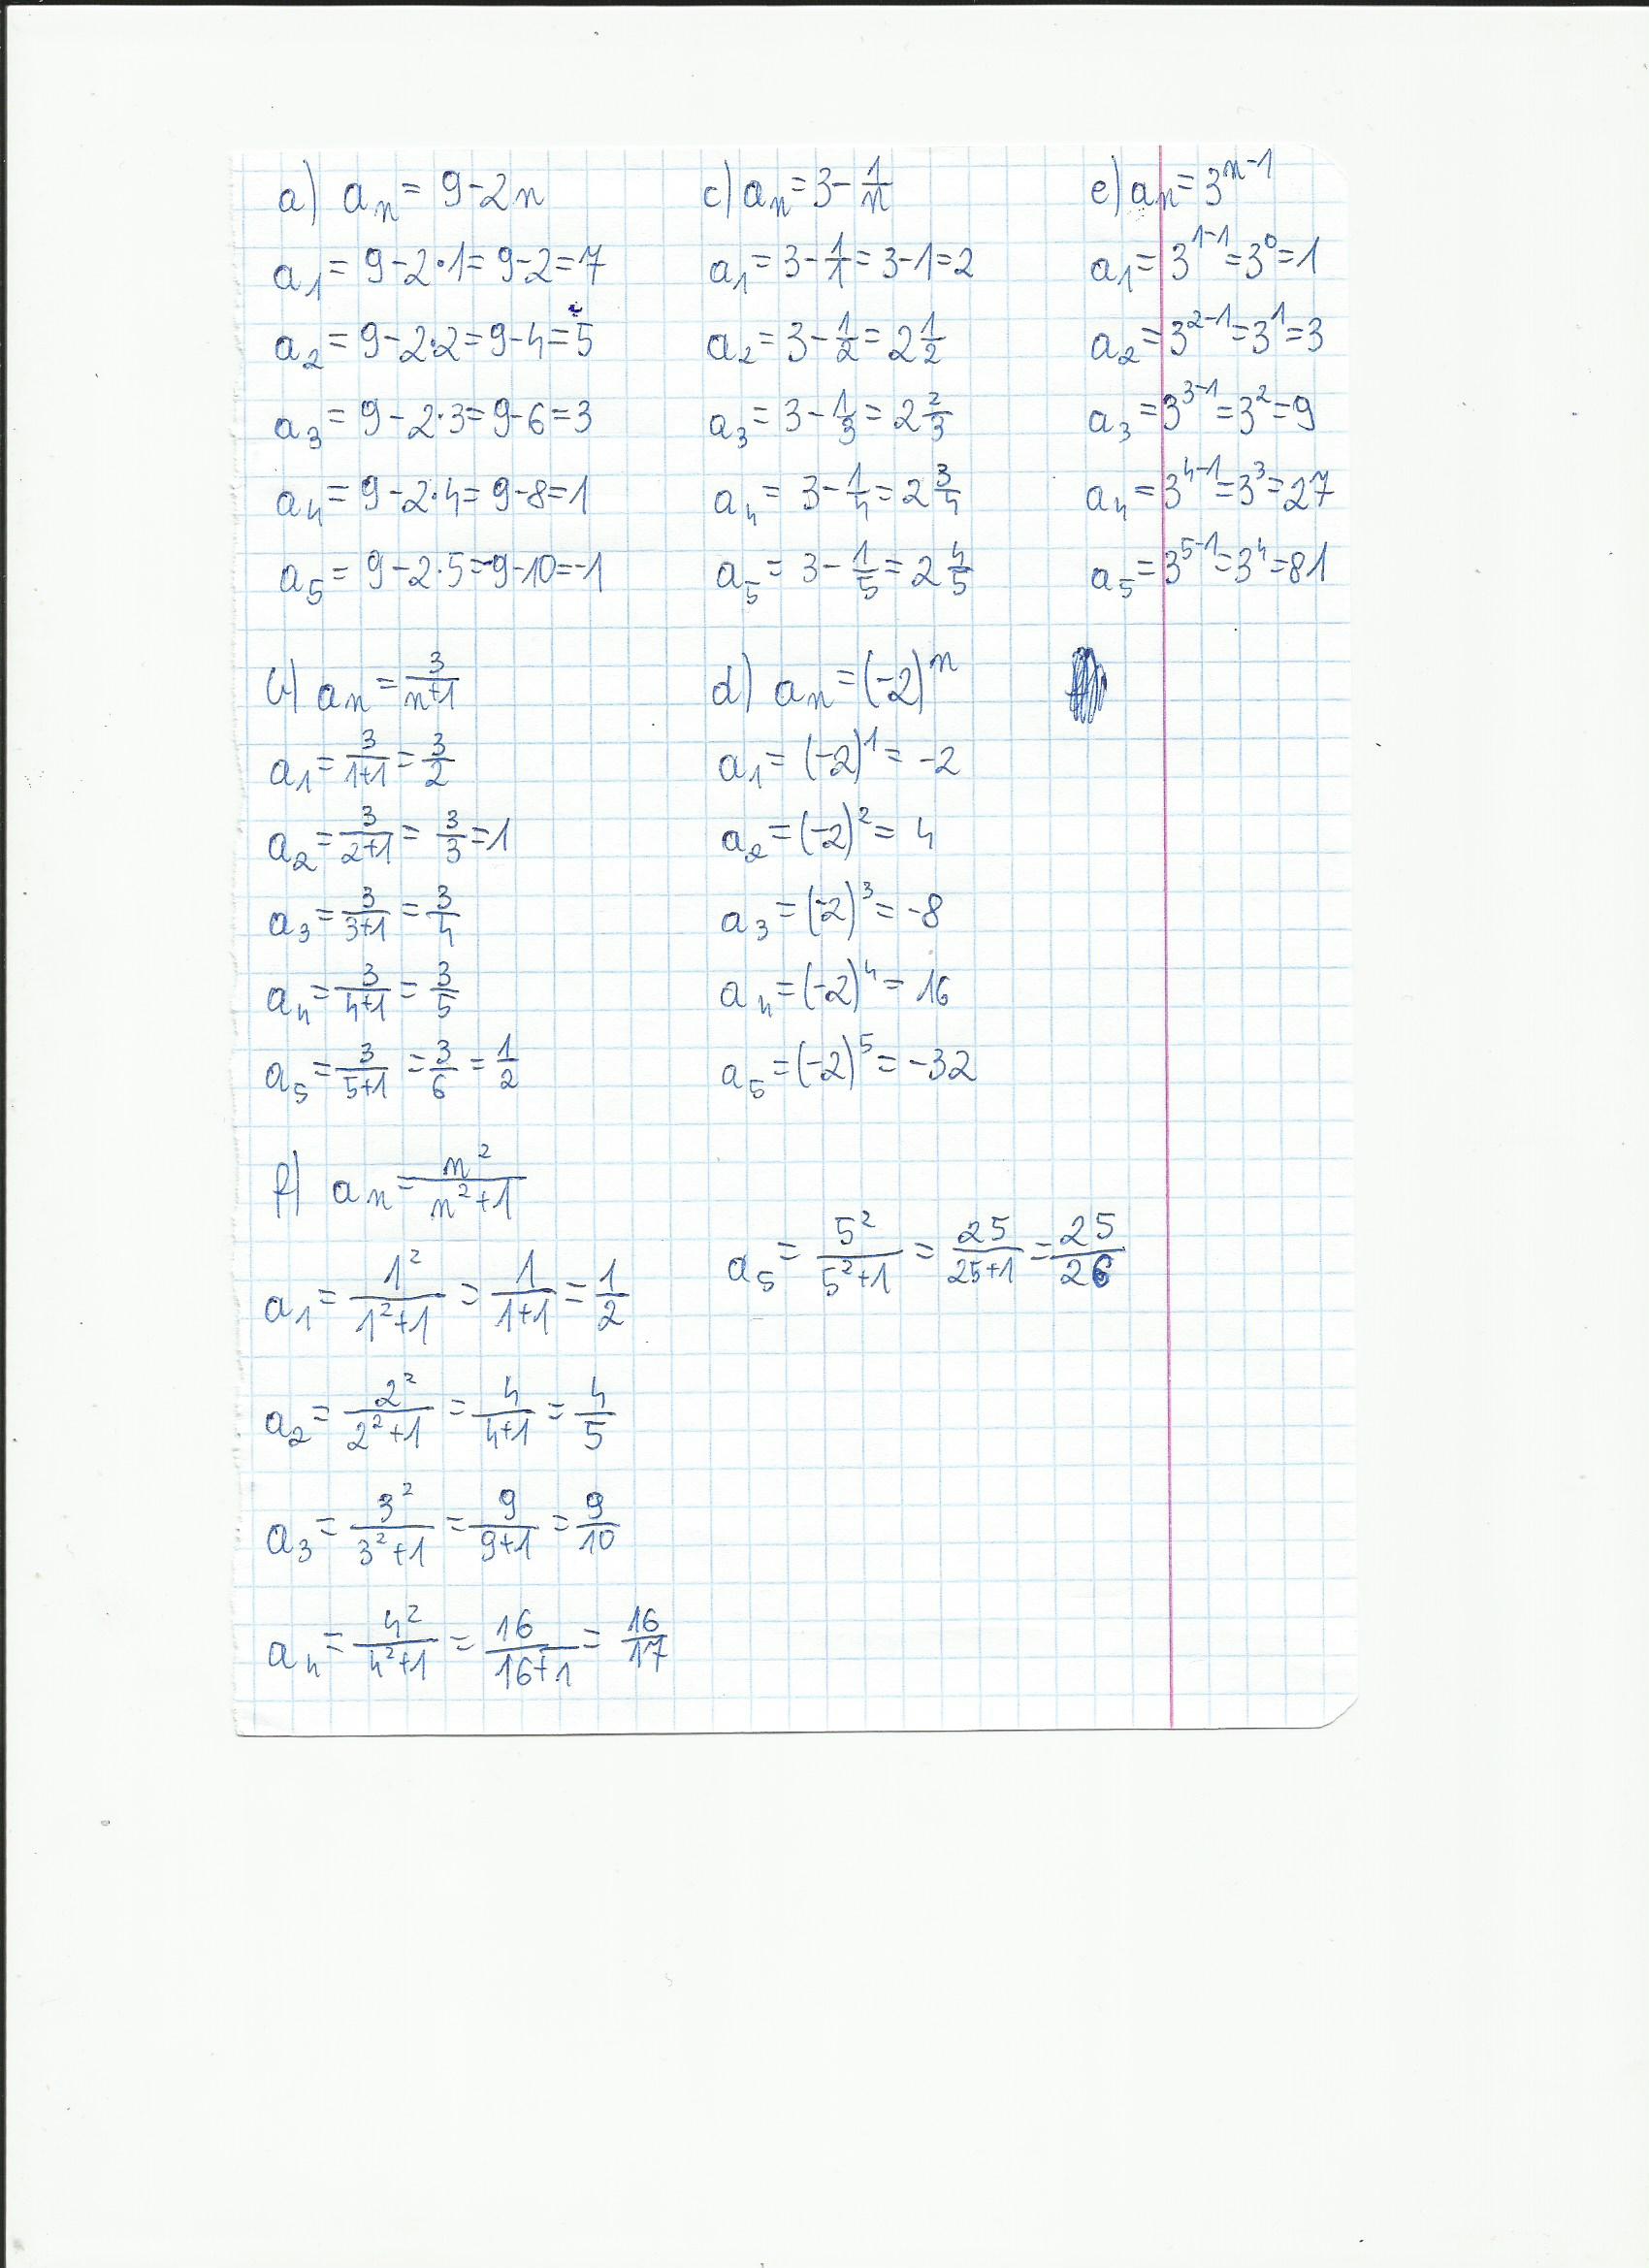 a) aₙ = 9-2n
a₁ = 9-2·1 = 9-2 = 7
a₂ = 9-2·2 = 9-4 = 5
a₃ = 9-2·3 = 9-6 = 3
a₄ = 9-2·4 = 9-8 = 1
a₅ = 9-2·5 = 9-10 = -1
c) aₙ = 3 - 1/n
a₁ = 3 - 1/1 = 3-1 = 2
a₂ = 3 - 1/2 = 2 1/2
a₃ = 3 - 1/3 = 2 2/3
a₄ = 3 - 1/4 = 2 3/4
a₅ = 3 - 1/5 = 2 4/5
e) aₙ = 3ⁿ⁻¹
a₁ = 3¹⁻¹ = 3⁰ = 1
a₂ = 3²⁻¹ = 3¹ = 3
a₃ = 3³⁻¹ = 3² = 9
a₄ = 3⁴⁻¹ = 3³ = 27
a₅ = 3⁵⁻¹ = 3⁴ = 81
b) aₙ = 3/(n+1)
a₁ = 3/(1+1) = 3/2
a₂ = 3/(2+1) = 3/3 = 1
a₃ = 3/(3+1) = 3/4
a₄ = 3/(4+1) = 3/5
a₅ = 3/(5+1) = 3/6 = 1/2
d) aₙ = (-2)ⁿ
a₁ = (-2)¹ = -2
a₂ = (-2)² = 4
a₃ = (-2)³ = -8
a₄ = (-2)⁴ = 16
a₅ = (-2)⁵ = -32
f) aₙ = n²/(n²+1)
a₁ = 1²/(1²+1) = 1/(1+1) = 1/2
a₂ = 2²/(2²+1) = 4/(4+1) = 4/5
a₃ = 3²/(3²+1) = 9/(9+1) = 9/10
a₄ = 4²/(4²+1) = 16/(16+1) = 16/17
a₅ = 5²/(5²+1) = 25/(25+1) = 25/26